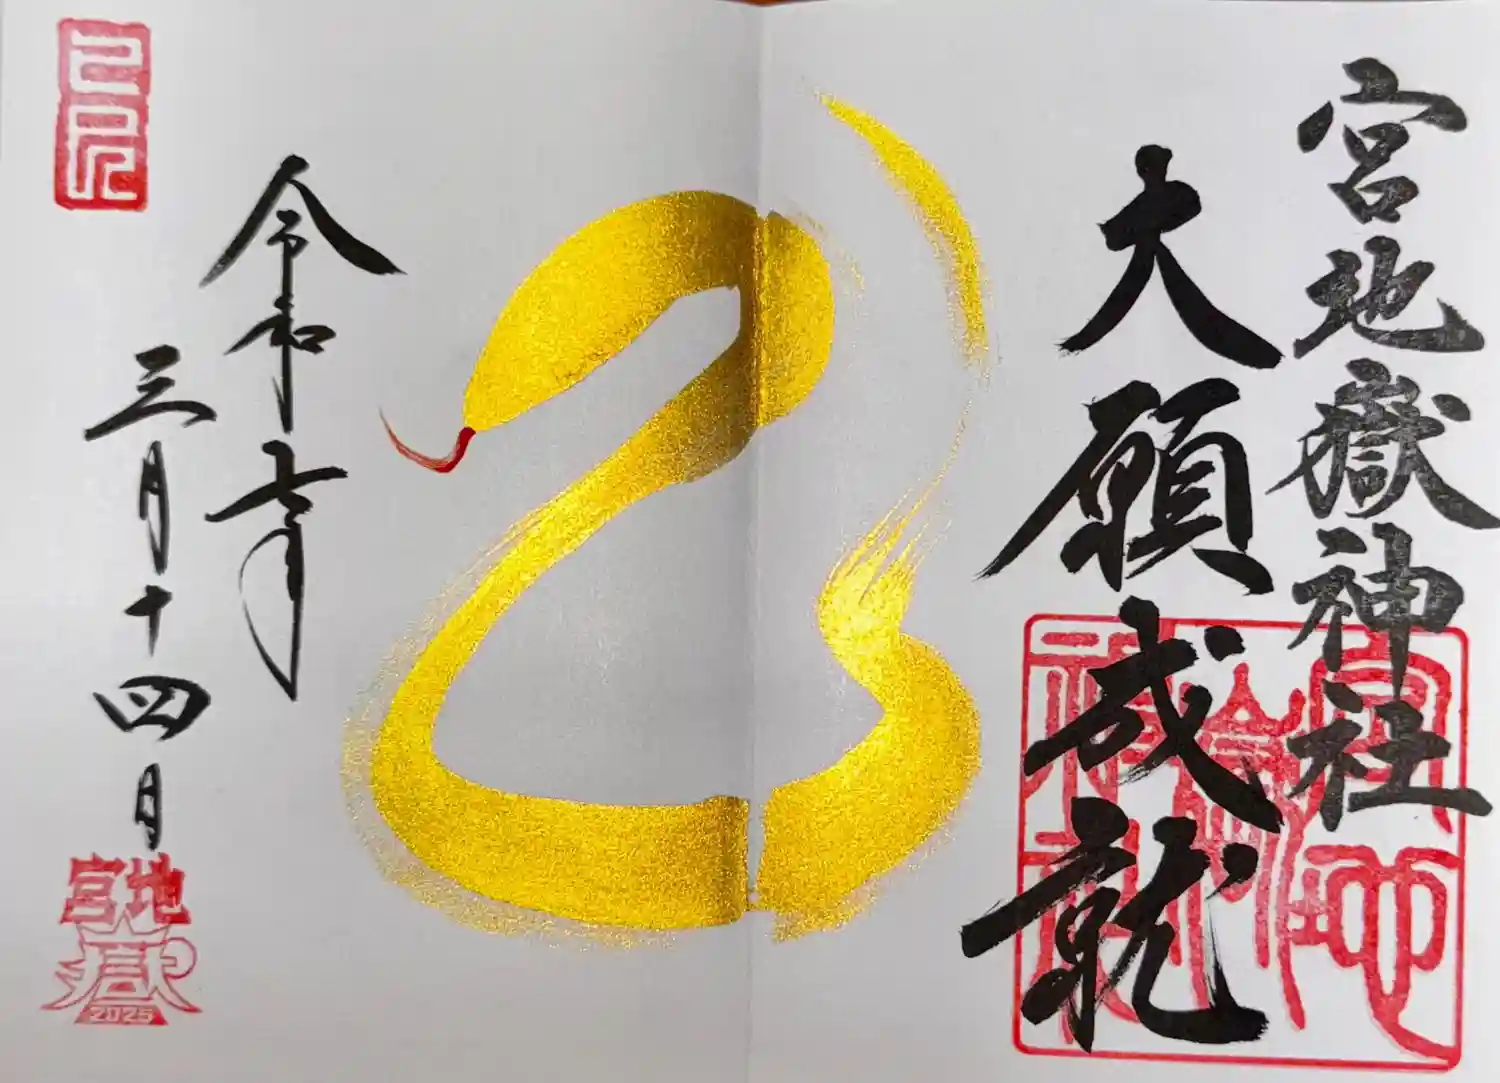 宮地嶽神社
大願成就
宮地嶽神社
令和七年
三月十四日
乙巳
宮地
嶽
2025